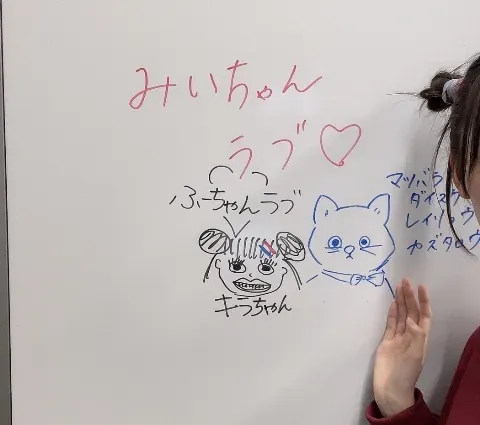 みいちゃん
ラブ♡
ふーちゃんラブ
キラちゃん
マツバラ
ダイスケ
カズタロウ